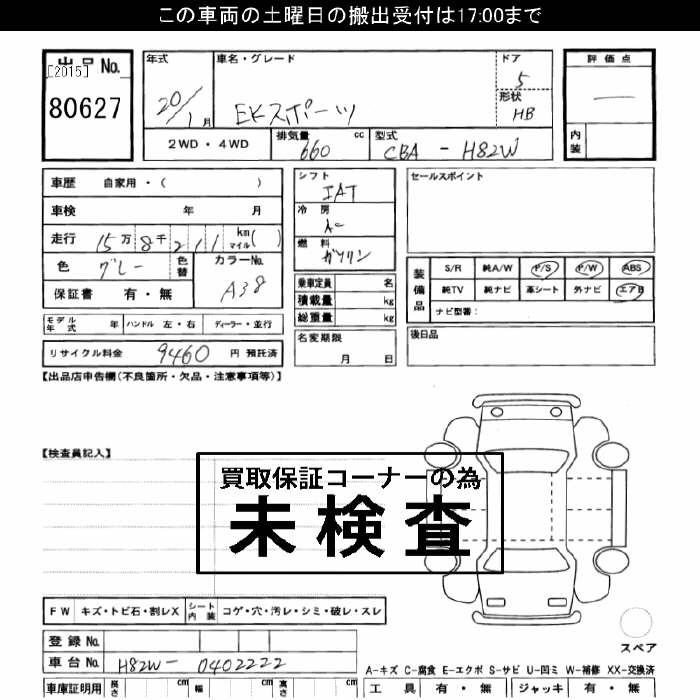 この車両の土曜日の搬出受付は17:00まで
出品No.
[2015]
80627
年式
20/1月
車名・グレード
EKスポーツ
ドア
5
形状
HB
評価点
内装
2WD・4WD
排気量
660 cc
型式
CBA - H82W
車歴 自家用・( )
車検 年 月
走行 15万8千211 kmマイル( )
色 グレー 色替
カラーNo.
A38
保証書 有・無
シフト
IAT
冷房
燃料
ガソリン
乗車定員 名
積載量 kg
総重量 kg
セールスポイント
装備品
S/R 純A/W P/S P/W ABS
純TV 純ナビ 革シート 外ナビ エアB
ナビ型番:
モデル年式 年 ハンドル 左・右 ディーラー・並行
リサイクル料金 9460 円 預託済
名変期限
月 日
後日品
【出品店申告欄(不良箇所・欠品・注意事項等)】
【検査員記入】
買取保証コーナーの為
未検査
FW キズ・トビ石・割レX シート内装 コゲ・穴・汚レ・シミ・破レ・スレ
スペア
登録No.
車台No. H82W- 0402222
A-キズ C-腐食 E-エクボ S-サビ U-凹ミ W-補修 XX-交換済
車庫証明用 長さ cm 幅 cm 高さ cm
工具 有・無 ジャッキ 有・無